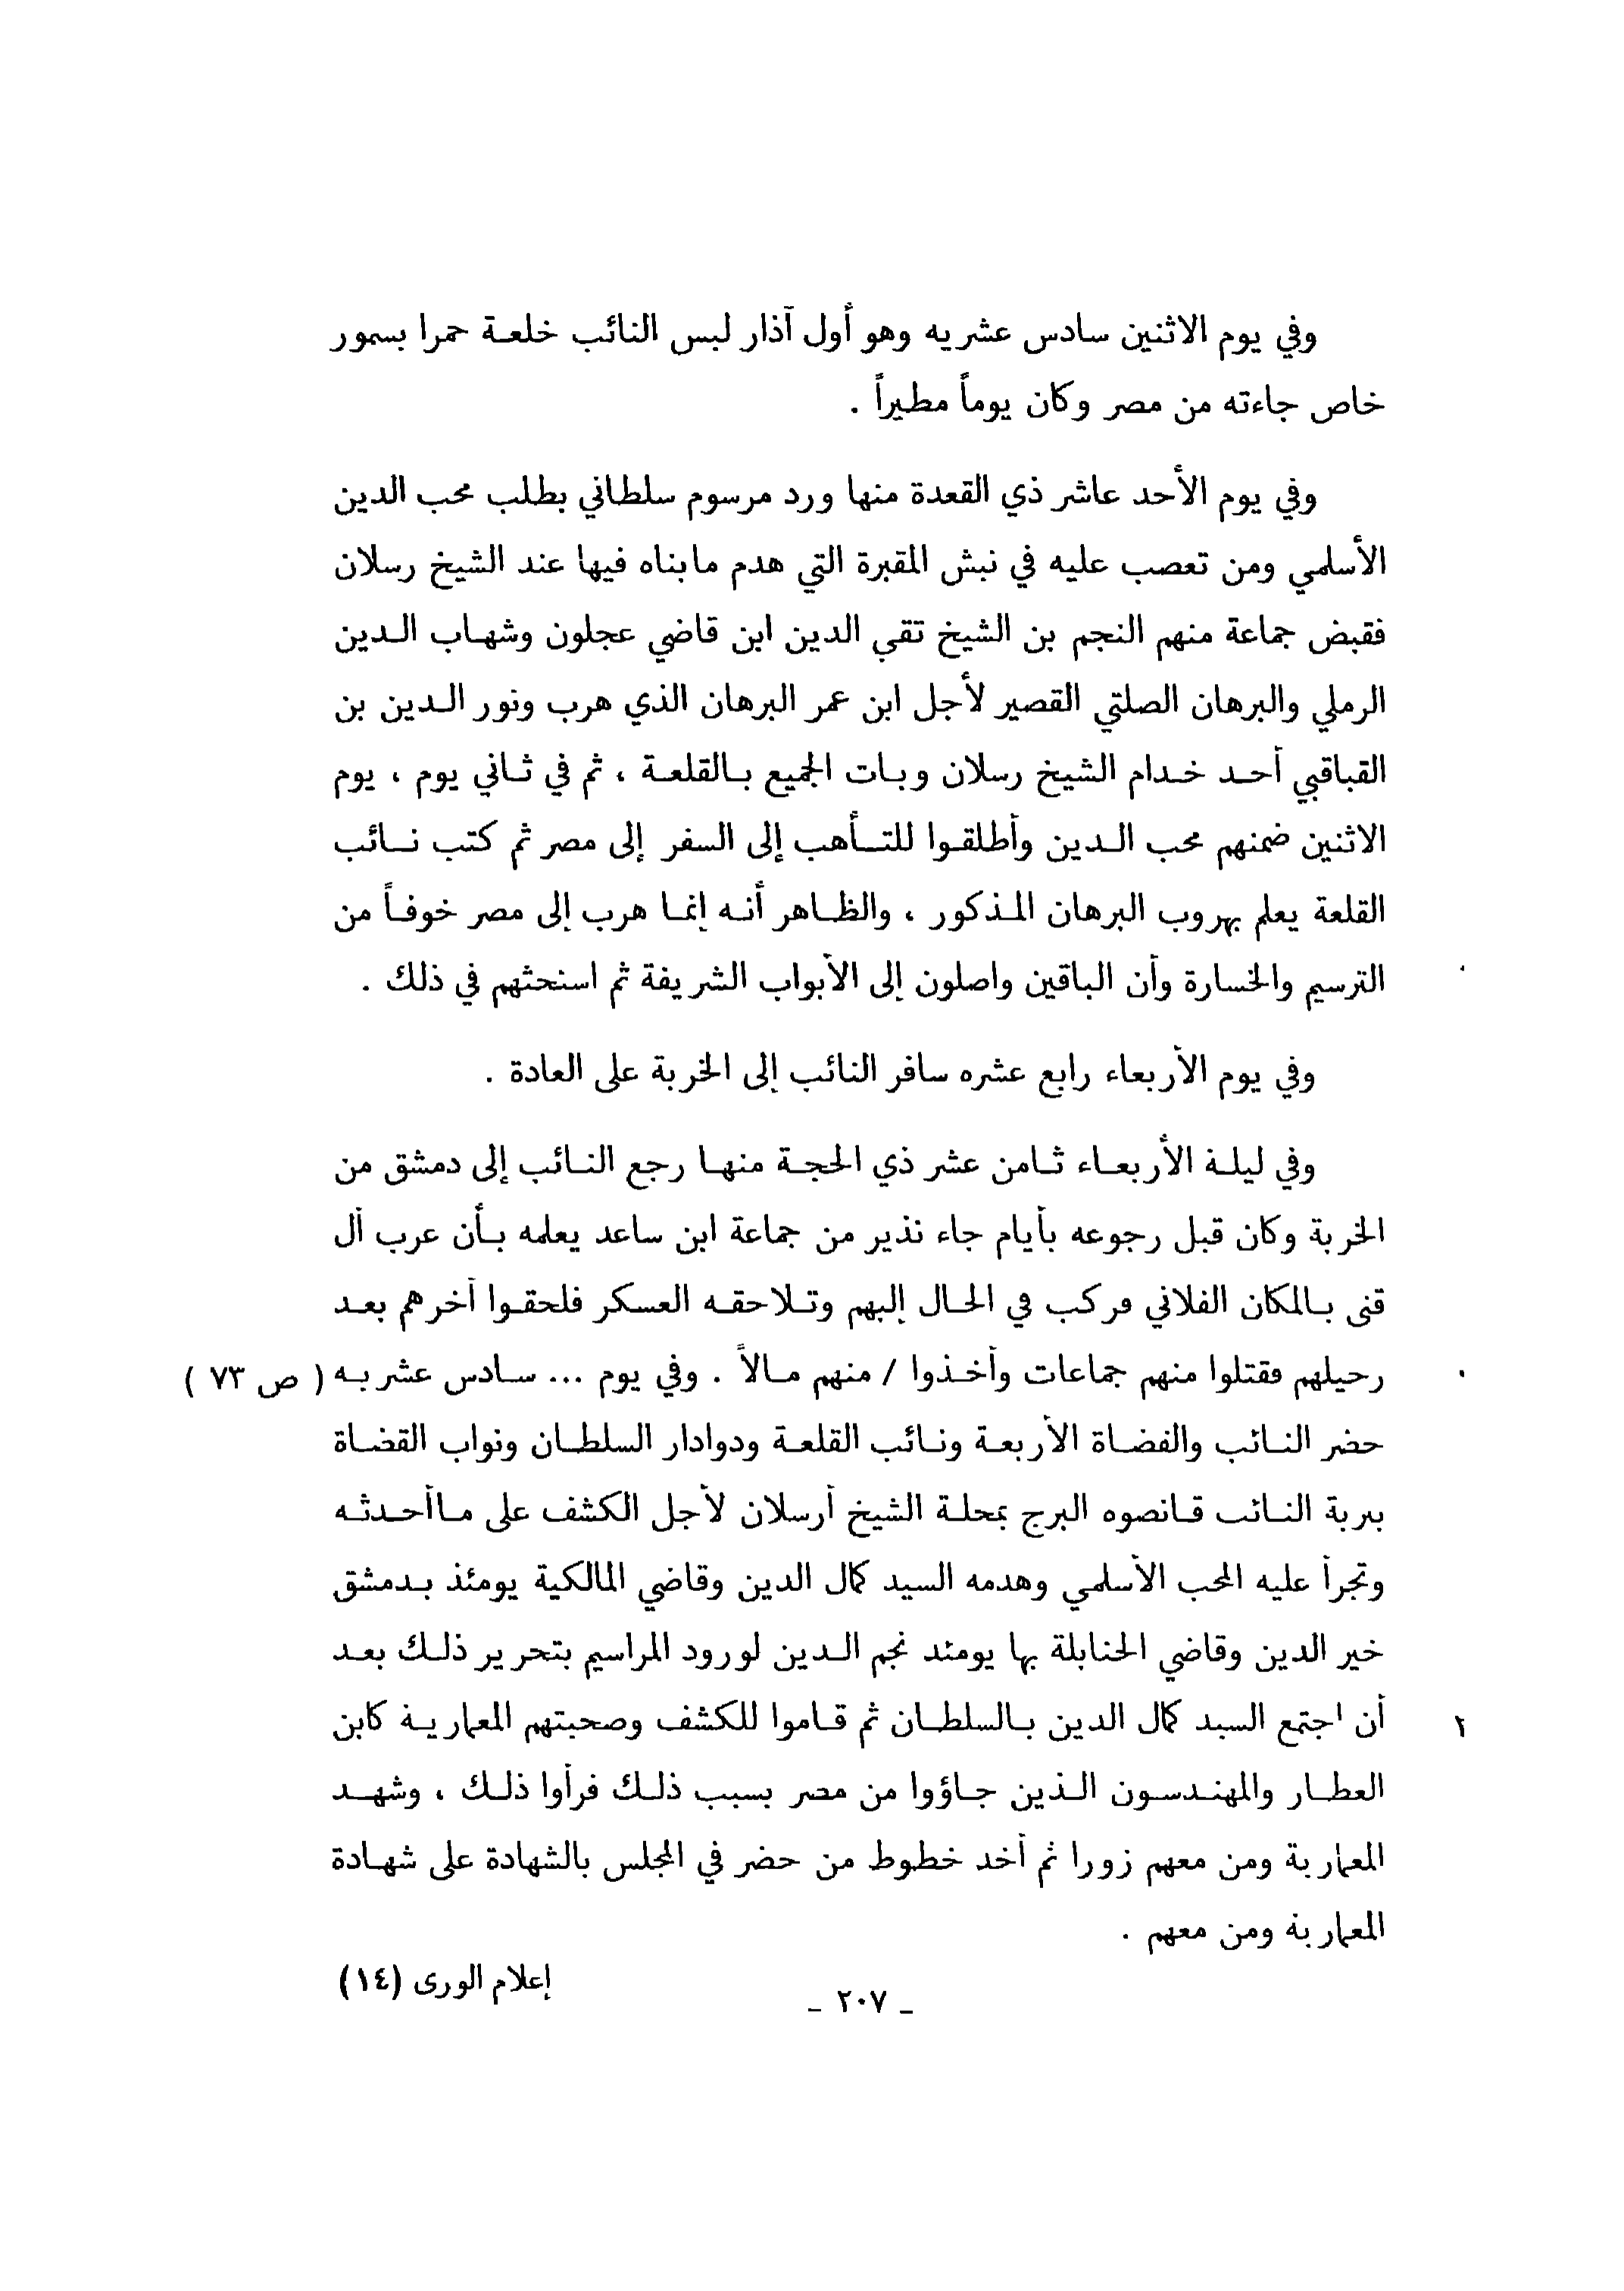 وفي يوم الاثنين سادس عشريه وهو أول آذار لبس النائب خلعة حمرا بسمور
خاص جاءته من مصر وكان يوماً مطيراً .
وفي يوم الأحد عاشر ذي القعدة منها ورد مرسوم سلطاني بطلب محب الدين
الأسلمي ومن تعصب عليه في نبش المقبرة التي هدم مابناه فيها عند الشيخ رسلان
فقبض جماعة منهم النجم بن الشيخ تقي الدين ابن قاضي عجلون وشهاب الدين
الرملي والبرهان الصلتي القصير لأجل ابن عمر البرهان الذي هرب ونور الدين بن
القباقبي أحد خدام الشيخ رسلان وبات الجميع بالقلعة ، ثم في ثاني يوم ، يوم
الاثنين ضمنهم محب الدين وأطلقوا للتأهب إلى السفر إلى مصر ثم كتب نائب
القلعة يعلم بهروب البرهان المذكور ، والظاهر أنه إنما هرب إلى مصر خوفاً من
الترسيم والخسارة وأن الباقين واصلون إلى الأبواب الشريفة ثم استحثهم في ذلك .
وفي يوم الأربعاء رابع عشره سافر النائب إلى الخربة على العادة .
وفي ليلة الأربعاء ثامن عشر ذي الحجة منها رجع النائب إلى دمشق من
الخربة وكان قبل رجوعه بأيام جاء نذير من جماعة ابن ساعد يعلمه بأن عرب آل
قنى بالمكان الفلاني فركب في الحال إليهم وتلاحقه العسكر فلحقوا آخرهم بعد
رحيلهم فقتلوا منهم جماعات وأخذوا / منهم مالاً . وفي يوم ... سادس عشريه ( ص ٧٣ )
حضر النائب والقضاة الأربعة ونائب القلعة ودوادار السلطان ونواب القضاة
بتربة النائب قانصوه البرج بمحلة الشيخ أرسلان لأجل الكشف على ماأحدثه
وتجرأ عليه المحب الأسلمي وهدمه السيد كمال الدين وقاضي المالكية يومئذ بدمشق
خير الدين وقاضي الحنابلة بها يومئذ نجم الدين لورود المراسيم بتحرير ذلك بعد
أن اجتمع السيد كمال الدين بالسلطان ثم قاموا للكشف وصحبتهم المعمارية كابن
العطار والمهندسون الذين جاؤوا من مصر بسبب ذلك فرأوا ذلك ، وشهد
المعمارية ومن معهم زورا ثم أخذ خطوط من حضر في المجلس بالشهادة على شهادة
المعمارية ومن معهم .
إعلام الورى (١٤)
ـ ٢٠٧ ـ